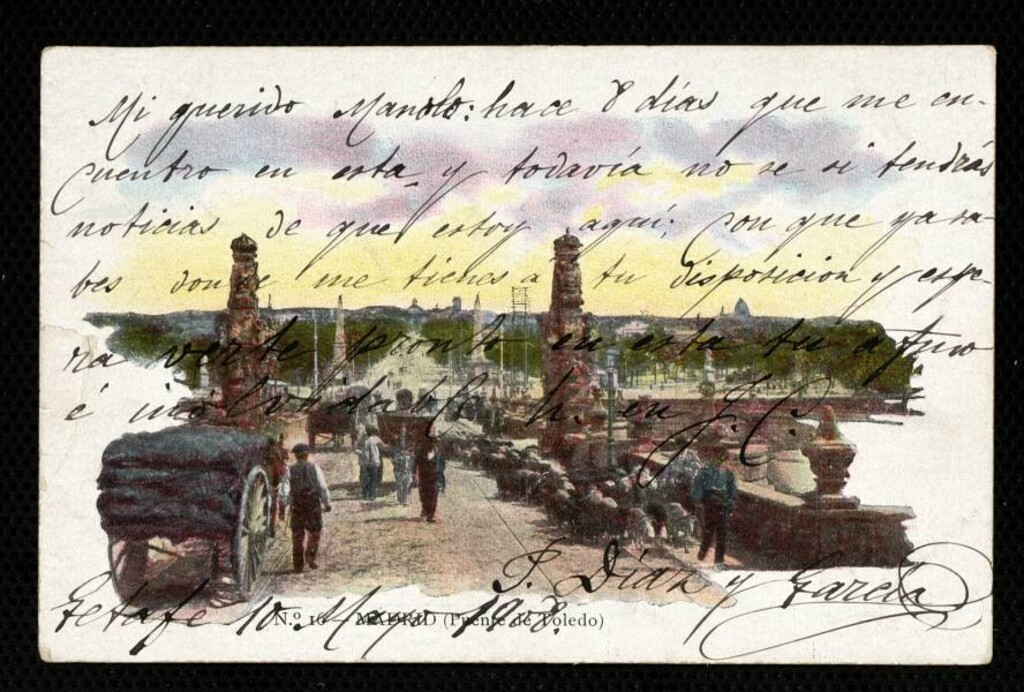 Mi querido Manolo: hace 8 días que me en-
cuentro en esta y todavía no se si tendrás
noticias de que estoy aquí; con que ya sa-
bes donde me tienes a tu disposición y espe-
ra verte pronto en esta tu afmo
é inolvidable h. en J. C.
P. Díaz y García
Getafe 10.
N.º 16 — MADRID (Puente de Toledo)